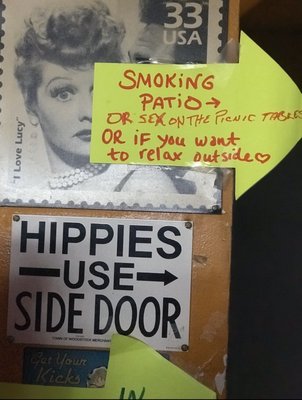 33
USA
"I Love Lucy"
SMOKING
PATIO →
OR SEX ON THE PICNIC TABLES
OR if you want
to relax outside♡
HIPPIES
USE
SIDE DOOR
TOWN OF WOODSTOCK MERCHANT
Get Your
Kicks
IN